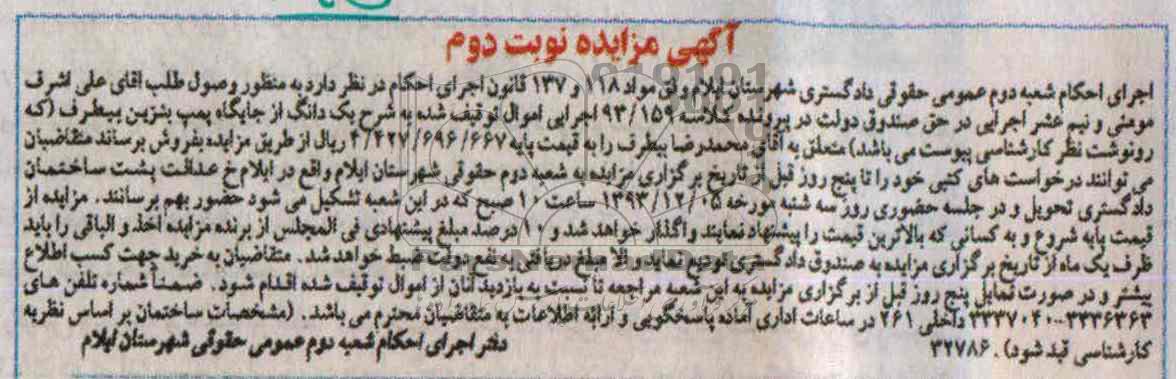 آگهی مزایده نوبت دوم
اجرای احکام شعبه دوم عمومی حقوقی دادگستری شهرستان ایلام وفق مواد ۱۱۸ و ۱۳۷ قانون اجرای احکام در نظر دارد به منظور وصول طلب آقای علی اشرف
مومنی و نیم عشر اجرایی در حق صندوق دولت در پرونده کلاسه ۹۳/۱۵۹ اجرایی اموال توقیف شده به شرح یک دانگ از جایگاه پمپ بنزین بیطرف (که
رونوشت نظر کارشناسی پیوست می باشد) متعلق به آقای محمدرضا بیطرف را به قیمت پایه ۴/۴۲۷/۶۹۶/۶۶۷ ریال از طریق مزایده بفروش برساند متقاضیان
می توانند درخواست های کتبی خود را تا پنج روز قبل از تاریخ برگزاری مزایده به شعبه دوم حقوقی شهرستان ایلام واقع در ایلام خ عدالت پشت ساختمان
دادگستری تحویل و در جلسه حضوری روز سه شنبه مورخه ۱۳۹۳/۱۲/۰۵ ساعت ۱۰ صبح که در این شعبه تشکیل می شود حضور بهم برسانند. مزایده از
قیمت پایه شروع و به کسانی که بالاترین قیمت را پیشنهاد نمایند واگذار خواهد شد و ۱۰ درصد مبلغ پیشنهادی فی المجلس از برنده مزایده اخذ و الباقی را باید
ظرف یک ماه از تاریخ برگزاری مزایده به صندوق دادگستری تودیع نماید والا مبلغ دریافتی به نفع دولت ضبط خواهد شد. متقاضیان به خرید جهت کسب اطلاع
بیشتر و در صورت تمایل پنج روز قبل از برگزاری مزایده به این شعبه مراجعه تا نسبت به بازدید آنان از اموال توقیف شده اقدام شود. ضمناً شماره تلفن های
۳۳۳۶۳۶۳-۳۳۳۷۰۴۰ داخلی ۲۶۱ در ساعات اداری آماده پاسخگویی و ارائه اطلاعات به متقاضیان محترم می باشد. (مشخصات ساختمان بر اساس نظریه
کارشناسی قید شود). ۳۲۷۸۶ دفتر اجرای احکام شعبه دوم عمومی حقوقی شهرستان ایلام